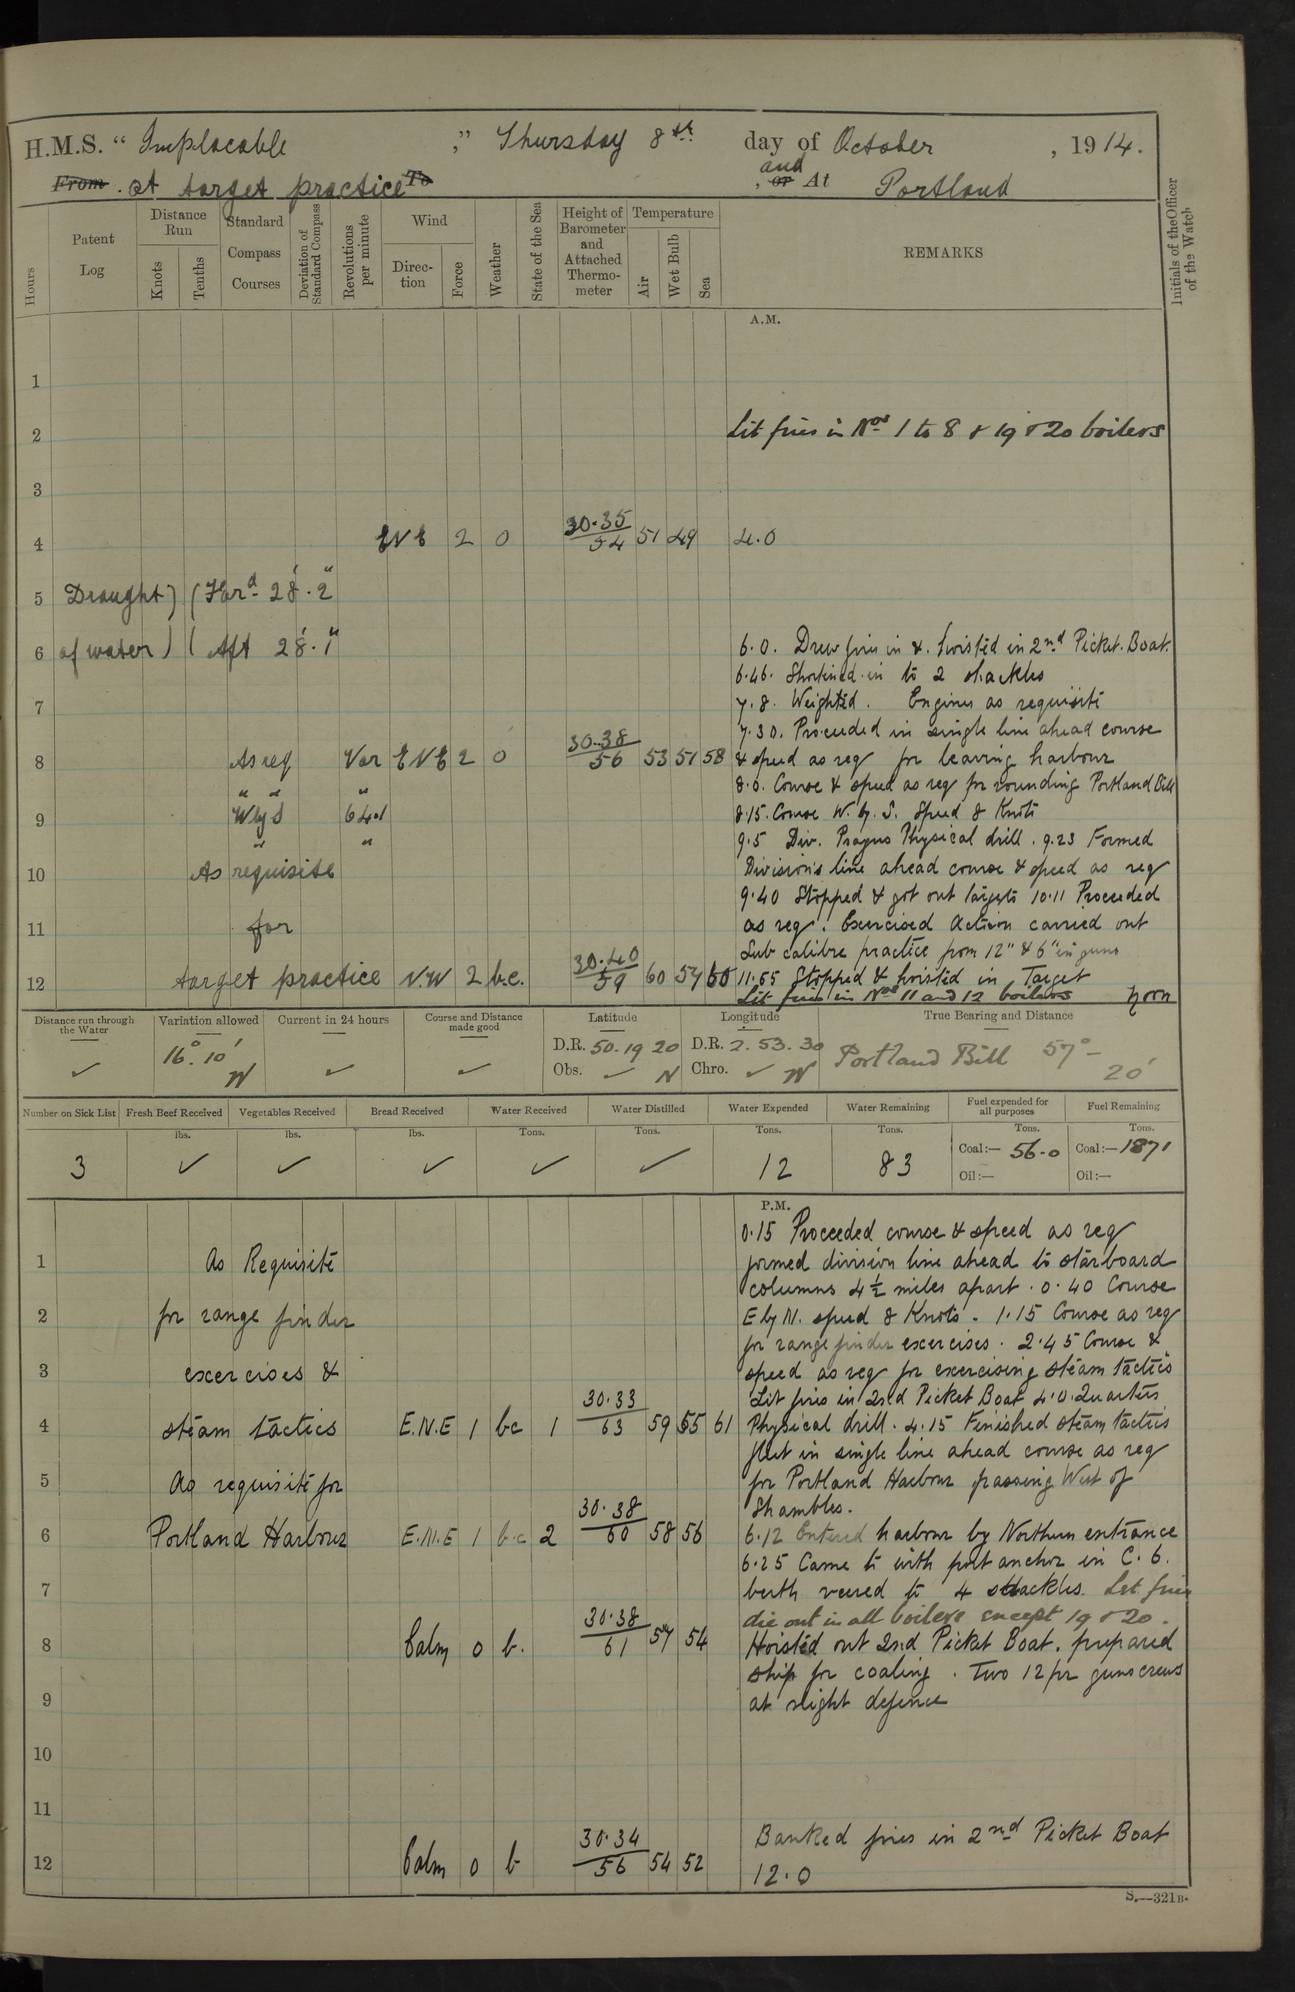 H.M.S. “ Implacable ,” Thursday 8th day of October , 1914.
From at target practice To , and or At Portland
Hours Patent Log Distance Run Knots Tenths Standard Compass Courses Deviation of Standard Compass Revolutions per minute Wind Direction Force Weather State of the Sea Height of Barometer and Attached Thermometer Temperature Air Wet Bulb Sea REMARKS Initials of the Officer of the Watch
A.M.
1
2 Lit fires in Nos 1 to 8 & 19 & 20 boilers
3
4 ENE 2 0 30.35 54 51 49 4.0
5 Draught) (For'd 28'.2"
6 of water) ( Aft 28'.1" 6.0. Drew fires in &. hoisted in 2nd Picket. Boat.
6.46. Shortened in to 2 shackles
7 7.8. Weighted. Engines as requisite
7.30. Proceeded in single line ahead course
8 As req Var ENE 2 0 30.38 56 53 51 58 & speed as req for leaving harbour
" " " 8.0. Course & speed as req for rounding Portland Bill
9 W by S 64.1 8.15. Course W. by. S. Speed 8 Knots
" " 9.5 Div. Prayers Physical drill. 9.23 Formed
10 As requisite Divisions line ahead course & speed as req
9.40 Stopped & got out targets 10.11 Proceeded
11 for as req. Exercised Action carried out
Sub calibre practice from 12" & 6" in guns
12 target practice N.W 2 b.c. 30.40 59 60 57 60 11.55 Stopped & hoisted in Target
Lit fires in Nos 11 and 12 boilers noon
Distance run through the Water Variation allowed Current in 24 hours Course and Distance made good Latitude Longitude True Bearing and Distance
✓ 16° 10' W ✓ ✓ D.R. 50.19 20 D.R. 2.53.30 Portland Bill 57° – 20'
Obs. ✓ N Chro. ✓ W
Number on Sick List Fresh Beef Received Vegetables Received Bread Received Water Received Water Distilled Water Expended Water Remaining Fuel expended for all purposes Fuel Remaining
lbs. lbs. lbs. Tons. Tons. Tons. Tons. Tons. Tons.
3 ✓ ✓ ✓ ✓ ✓ 12 83 Coal:— 56.0 Coal:— 1871
Oil:— Oil:—
P.M.
0.15 Proceeded course & speed as req
1 As Requisite formed division line ahead to starboard
columns 4½ miles apart. 0.40 Course
2 for range finder E by N. speed 8 Knots. 1.15 Course as req
for range finder exercises. 2.45 Course &
3 exercises & speed as req for exercising steam tactics
Lit fires in 2nd Picket Boat 4.0. Quarters
4 steam tactics E.N.E 1 bc 1 30.33 63 59 55 61 Physical drill. 4.15 Finished steam tactics
fleet in single line ahead course as req
5 As requisite for for Portland Harbour passing West of
Shambles.
6 Portland Harbour E.N.E 1 b.c 2 30.38 60 58 56 6.12 Entered harbour by Northern entrance
6.25 Came to with port anchor in C. 6.
7 berth veered to 4 shackles. Let fires
die out in all boilers except 19 & 20.
8 Calm 0 b. 30.38 61 57 54 Hoisted out 2nd Picket Boat. prepared
ship for coaling. Two 12 pr guns crews
9 at night defence
10
11
Banked fires in 2nd Picket Boat
12 Calm 0 b 30.34 56 54 52 12.0
S.—321B.